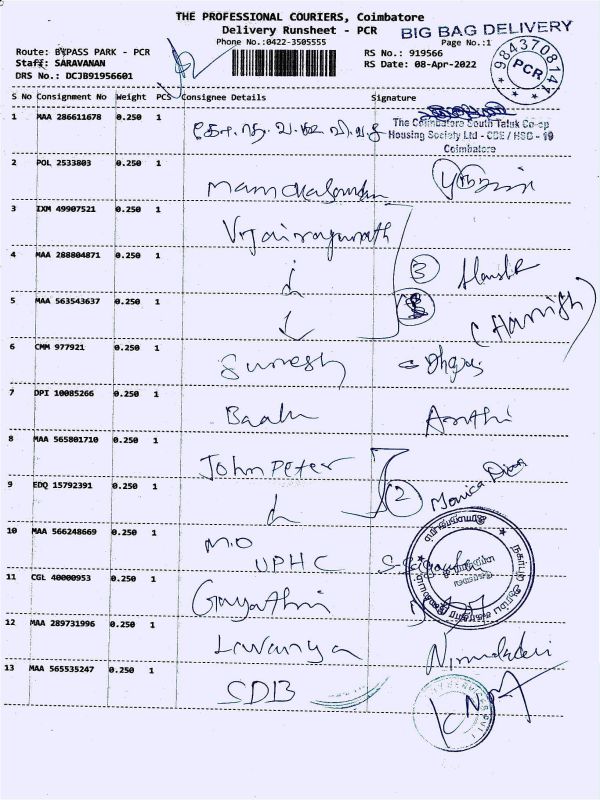 THE PROFESSIONAL COURIERS, Coimbatore
Delivery Runsheet - PCR
BIG BAG DELIVERY
Phone No.:0422-3505555
Page No.:1
Route: BYPASS PARK - PCR
RS No.: 919566
Staff: SARAVANAN
RS Date: 08-Apr-2022
DRS No.: DCJB91956601
9843708144
PCR
S No Consignment No Weight PCS Consignee Details Signature
1 MAA 286611678 0.250 1
The Coimbatore South Taluk Co-op
Housing Society Ltd - CBE / HSG - 19
Coimbatore
2 POL 2533803 0.250 1
3 IXM 49907521 0.250 1 Vijairagunath
4 MAA 288804871 0.250 1 3
5 MAA 563543637 0.250 1 (Harrish)
6 CMM 977921 0.250 1 Suresh
7 DPI 10085266 0.250 1 Baalu Aruthi
8 MAA 565801710 0.250 1 John Peter
9 EDQ 15792391 0.250 1 2 Monica
10 MAA 566248669 0.250 1 M.O
UPHC
11 CGL 40000953 0.250 1 Gayathri
12 MAA 289731996 0.250 1 Lavanya Nirmaladevi
13 MAA 565535247 0.250 1 SDB